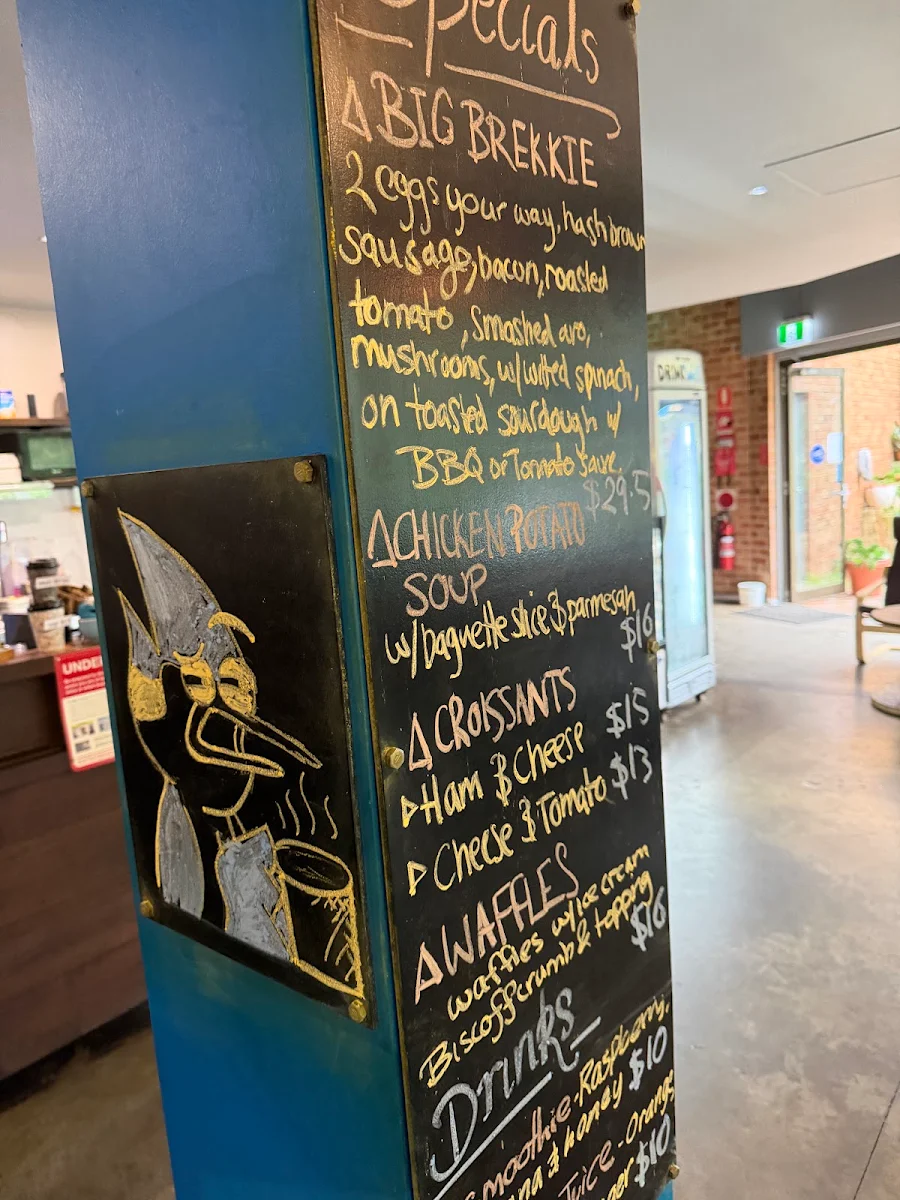 Specials
BIG BREKKIE
2 eggs your way, hash brown
sausage, bacon, roasted
tomato, smashed avo,
mushrooms, w/ wilted spinach,
on toasted sourdough w/
BBQ or Tomato Sauce.
$29.5
CHICKEN POTATO
SOUP
w/ baguette slice & parmesan
$16
CROISSANTS
Ham & Cheese $15
Cheese & Tomato $13
WAFFLES
waffles w/ ice cream
Biscoff crumb & topping
$16
Drinks
smoothie - Raspberry,
& honey $10
Juice - Orange
$10
UNDE
DRINK